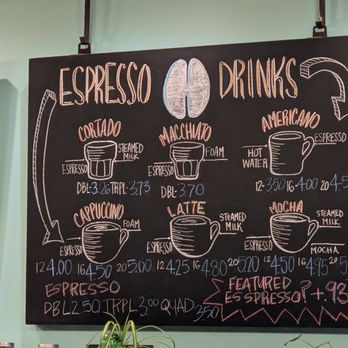 ESPRESSO DRINKS
CORTADO
STEAMED
MILK
ESPRESSO
DBL 3.26 TRPL 3.73
MACCHIATO
FOAM
ESPRESSO
DBL 3.70
AMERICANO
ESPRESSO
HOT
WATER
12 3.50 16 4.00 20 4.5
CAPPUCCINO
FOAM
ESPRESSO
12 4.00 16 4.50 20 5.00
LATTE
STEAMED
MILK
ESPRESSO
12 4.25 16 4.80 20 5.20
MOCHA
STEAMED
MILK
ESPRESSO
MOCHA
12 4.50 16 4.95 20
ESPRESSO
DBL 2.50 TRPL 3.00 QUAD 3.50
FEATURED
ESSPRESSO? + .93